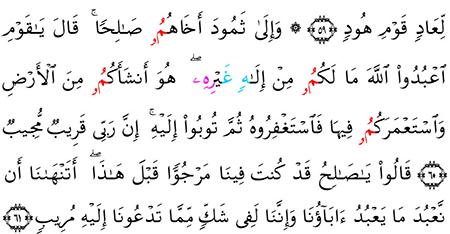 لِّعَادٍ قَوْمِ هُودٍ ﴿٥٩﴾ ۞ وَإِلَىٰ ثَمُودَ أَخَاهُمُۥ صَٰلِحًا ۚ قَالَ يَٰقَوْمِ
ٱعْبُدُوا۟ ٱللَّهَ مَا لَكُمُۥ مِنْ إِلَٰهٍ غَيْرِهِۦ ۖ هُوَ أَنشَأَكُمُۥ مِنَ ٱلْأَرْضِ
وَٱسْتَعْمَرَكُمُۥ فِيهَا فَٱسْتَغْفِرُوهُ ثُمَّ تُوبُوٓا۟ إِلَيْهِ ۚ إِنَّ رَبِّى قَرِيبٌ مُّجِيبٌ
﴿٦٠﴾ قَالُوا۟ يَٰصَٰلِحُ قَدْ كُنتَ فِينَا مَرْجُوًّا قَبْلَ هَٰذَآ ۖ أَتَنْهَىٰنَآ أَن
نَّعْبُدَ مَا يَعْبُدُ ءَابَآؤُنَا وَإِنَّنَا لَفِى شَكٍّ مِّمَّا تَدْعُونَآ إِلَيْهِ مُرِيبٍ ﴿٦١﴾